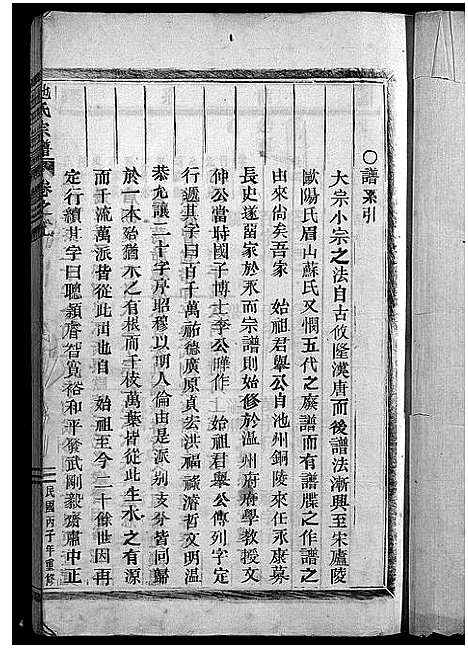 〇譜系引
大宗小宗之法自古攸隆漢唐而後譜法漸興至宋廬陵
歐陽氏眉山蘇氏又憫五代之廢譜而有譜牒之作譜之
由來尚矣吾家 始祖君舉公自池州銅陵來任永康募
長史遂留家於永而宗譜則始修於溫州府府學教授文
仲公當時國子博士李公曄作 始祖君舉公傳列字定
行遞其字曰百千萬祐德廣原貞宏洪福祿濬哲文明溫
恭允讓二十字序昭穆以明人倫由是派別支分皆同歸
於一本殆猶木之有根而千枝萬葉皆從此生水之有源
而千流萬派皆從此出也自 始祖至今二十餘世因再
定行續其字曰聰顯睿智寬裕和平發武剛毅齋肅中正
氏宗譜
卷之
民國丙子年重修